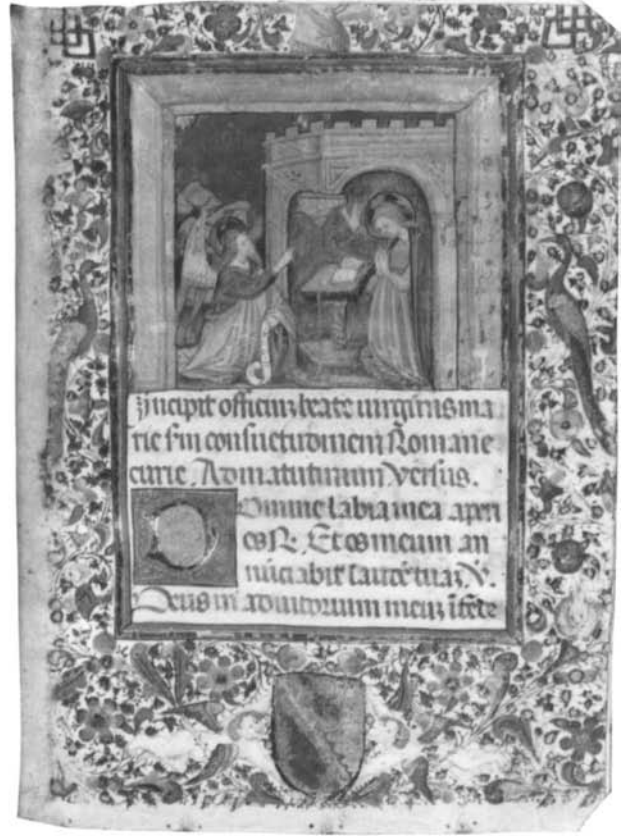 Incipit officiuz beate uirginis ma
rie sm consuetudinem Romane
curie. Ad matutinum Versus.
Domine labia mea aperi
es R. Et os meum an
nuciabit laude tuaz V.
Deus in adiutorium meuz itēde